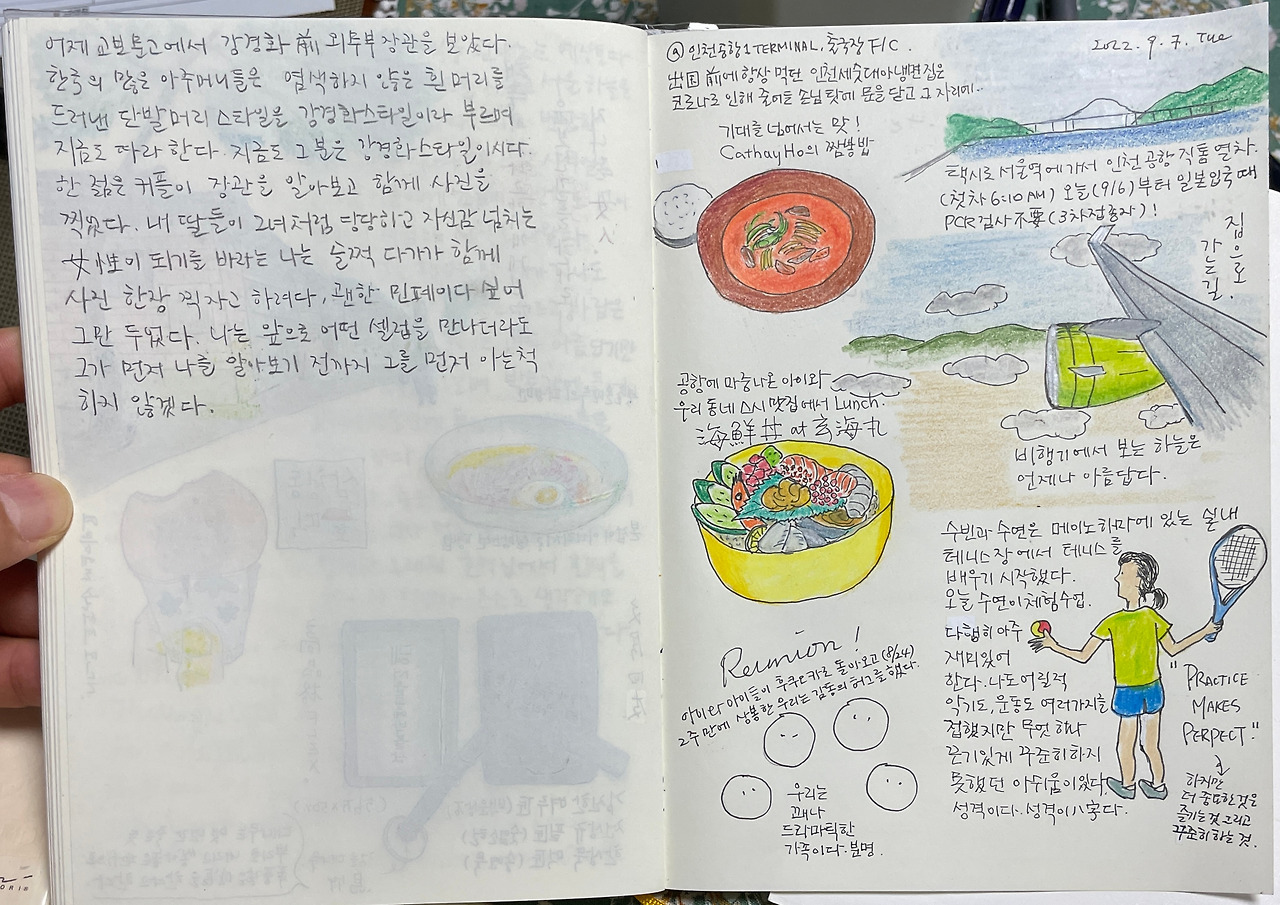 어제 교보문고에서 강경화 前 외투부장관을 보았다.
한국의 많은 아주머니들은 염색하지 않은 흰 머리를
드러낸 단발머리 스타일을 강경화스타일이라 부르며
지금도 따라 한다. 지금도 그분은 강경화스타일이시다.
한 젊은 커플이 장관을 알아보고 함께 사진을
찍었다. 내 딸들이 그녀처럼 당당하고 자신감 넘치는
女性이 되기를 바라는 나는 슬쩍 다가가 함께
사진 한장 찍자고 하려다, 괜한 민폐이다 싶어
그만 두었다. 나는 앞으로 어떤 셀럽을 만나더라도
그가 먼저 나를 알아보기 전까지 그를 먼저 아는척
하지 않겠다.
@ 인천공항 1 TERMINAL, 출국장 F/C.
2022. 9. 7. Tue
出国 前에 항상 먹던 인천세숫대야냉면집은
코로나로 인해 줄어든 손님 탓에 문을 닫고 그 자리에..
기대를 넘어서는 맛!
CathayHo의 짬뽕밥
택시로 서울역에가서 인천공항 직통열차.
(첫차 6:10 AM) 오늘(9/6)부터 일본입국 때
PCR검사 不要 (3차접종자)!
집으로
가는 길.
공항에 마중나온 아이와
우리 동네 스시 맛집에서 Lunch.
海鮮丼 at 玄海丸
비행기에서 보는 하늘은
언제나 아름답다.
Reunion!
아이와 아이들이 후쿠오카로 돌아오고 (8/24)
2주만에 상봉한 우리는 감동의 허그를 했다.
우리는
꽤나
드라마틱한
가족이다. 분명.
수빈과 수연은 메이노하마에 있는 실내
테니스장에서 테니스를
배우기 시작했다.
오늘 수연이 체험수업.
다행히 아주
재미있어
한다. 나도 어릴적
악기도, 운동도 여러가지를
접했지만 무엇 하나
끈기있게 꾸준히하지
못했던 아쉬움이 있다.
성격이다. 성격이 八字다.
"PRACTICE
MAKES
PERFECT."
하지만
더 중요한 것은
즐기는 것 그리고
꾸준히 하는 것.